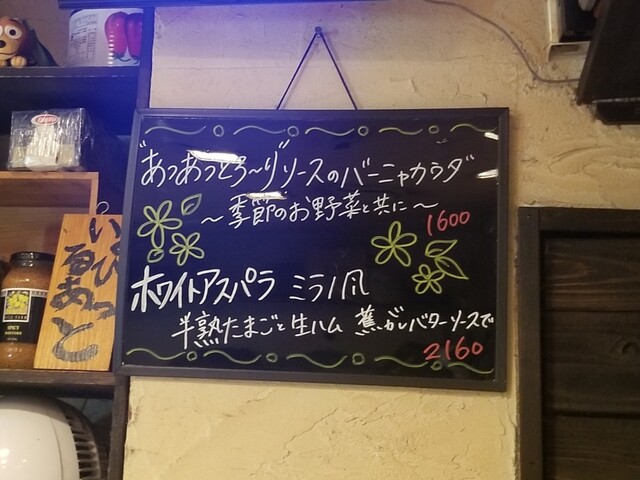 "あつあつとろ～り"ソースのバーニャカウダ
～季節のお野菜と共に～
1600
ホワイトアスパラ ミラノ風
半熟たまごと生ハム 蕉がしバターソースで
2160